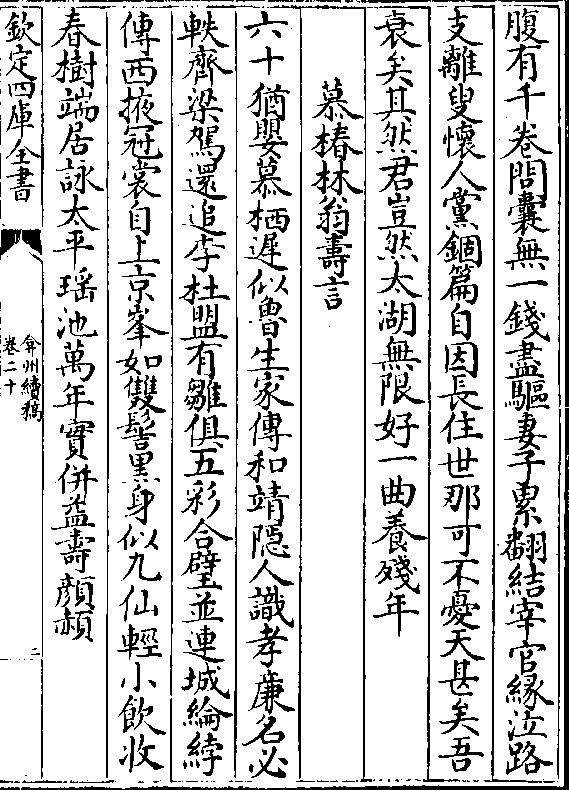 腹有千卷問囊無一錢盡驅妻子累翻結宰官縁泣路
支離叟懷人黨錮篇自因長住世那可不憂天甚矣吾
衰矣其然君豈然太湖無限好一曲養殘年
慕椿林翁壽言
六十猶嬰慕栖遲似魯生家傳和靖隠人識孝廉名必
軼齊梁駕還追李杜盟有雛俱五彩合璧並連城綸綍
傳西掖冠裳自上京峯如雙髻黒身似九仙輕小飲收
春樹端居詠太平瑶池萬年實併益壽顔赬
欽定四庫全書
弇州續稿
卷二十
二